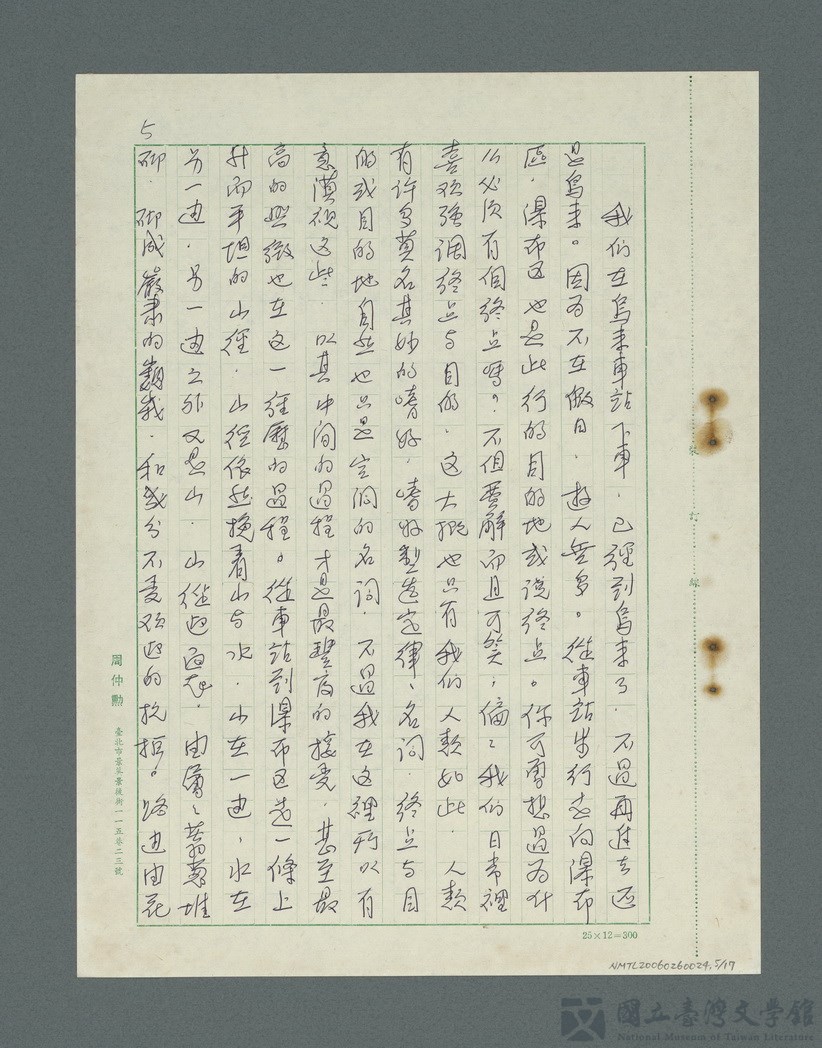 5
我们在烏来車站下車．已經到烏来了．不过再進去还
是烏来。因為不在假日．故人無多。從車站步行去的瀑布
區．瀑布區也是此行的目的地或説终点。你可曾想過為什
么必須有個終点嗎？不但費解而且可笑，偏々我们日常裡
喜欢強調終点与目的．这大概也只有我们人類如此．人類
有许多莫名其妙的嗜好．嗜好製造定律、名詞．終点与目
的或目的地自然也只是空洞的名詞．不過我在这裡所以有
意漠視这些．以其中间的過程才是最豐富的接受．甚至最
高的興緻也在这一經歷的過程。從車站到瀑布区是一條上
升而平坦的山徑．山徑依然挽着山与水．山在一边，水在
另一边．另一边之外又是山．山從 ．由 々蓊蓊堆
砌．砌成嚴肅的巍峩．和或分不受欢迎的抗拒。路边由花
周仲勲 臺北市景美景後街一一五巷二三號
裝訂線
25×12=300
NMTL20060260024,5/17
國立臺灣文學館
National Museum of Taiwan Literature